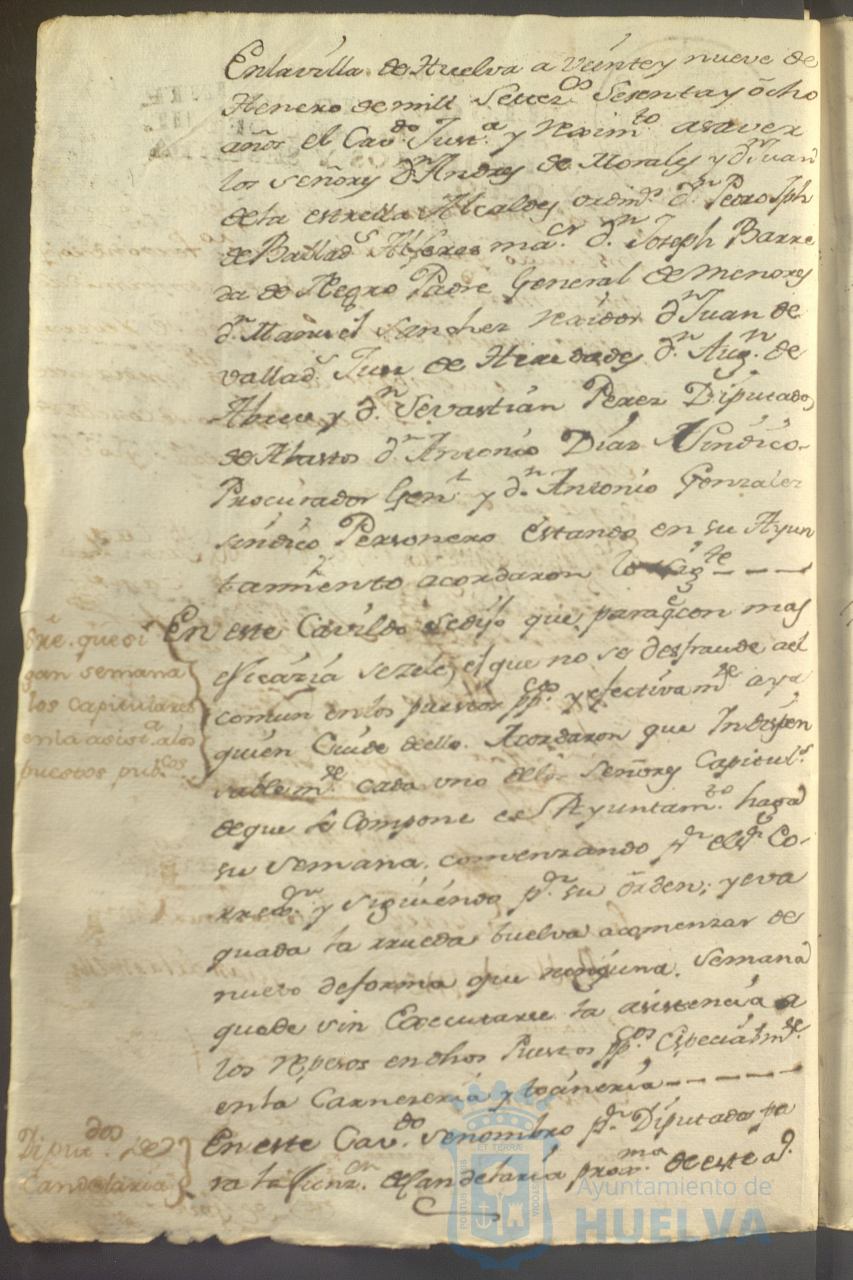 En la villa de Huelva a veinte y nueve de
Henero de mill Settez.os Sesenta y ôcho
años el Cav.do Just.a y Rexim.to asaver
los Señores d.n Andres de Morales y d.n Juan
de la estrella Alcaldes ordin.s d.n Pedro Jph
de Ballad.s Alferes ma.or d.n Joseph Barre
da de Negro Padre General de Menores
d.n Manuel Sanchez Rexidor d.n Juan de
vallad.s Juez de Heredades d.n Aug.n de
y d.n Sevastián Perez Diputados
de Abastos d.n Antonio Diaz Sindico
Procurador Gen.l y d.n Antonio Gonzalez
sindico Personero estando en su Ayun
tamiento acordaron lo sig.te - - - -
Sre. que si
gan semana
los capitulares
en la asist.a a los
puestos pub.cos
En este Cavildo se dijo que para q.e con mas
eficazia se zele, el que no se desfraude al
comun en los puestos pp.cos y efectivam.te aya
quien Cuide dello. Acordaron que Indispen
sablem.te cada uno de los Señores Capitul.s
de que se Compone este Ayuntam.to haga
su Semana, comenzando p.r el S.r Co-
rreg.or y siguiendo p.r su ôrden; y eva
quada la rrueda buelva a comenzar de
nuevo de forma que ninguna Semana
quede sin Executarse la asistencia a
los Repesos en dhos Puestos pp.cos Especialm.te
en la Carnereria y tocineria - - - - -
Diput.dos de
Candelaria
En este Cav.do se nombro p.r Diputados pa
ra la funz.on de Candelaria prox.ma de este a.o
ET TERRÆ
PORTUS
CUSTODIA
Ayuntamiento de
HUELVA